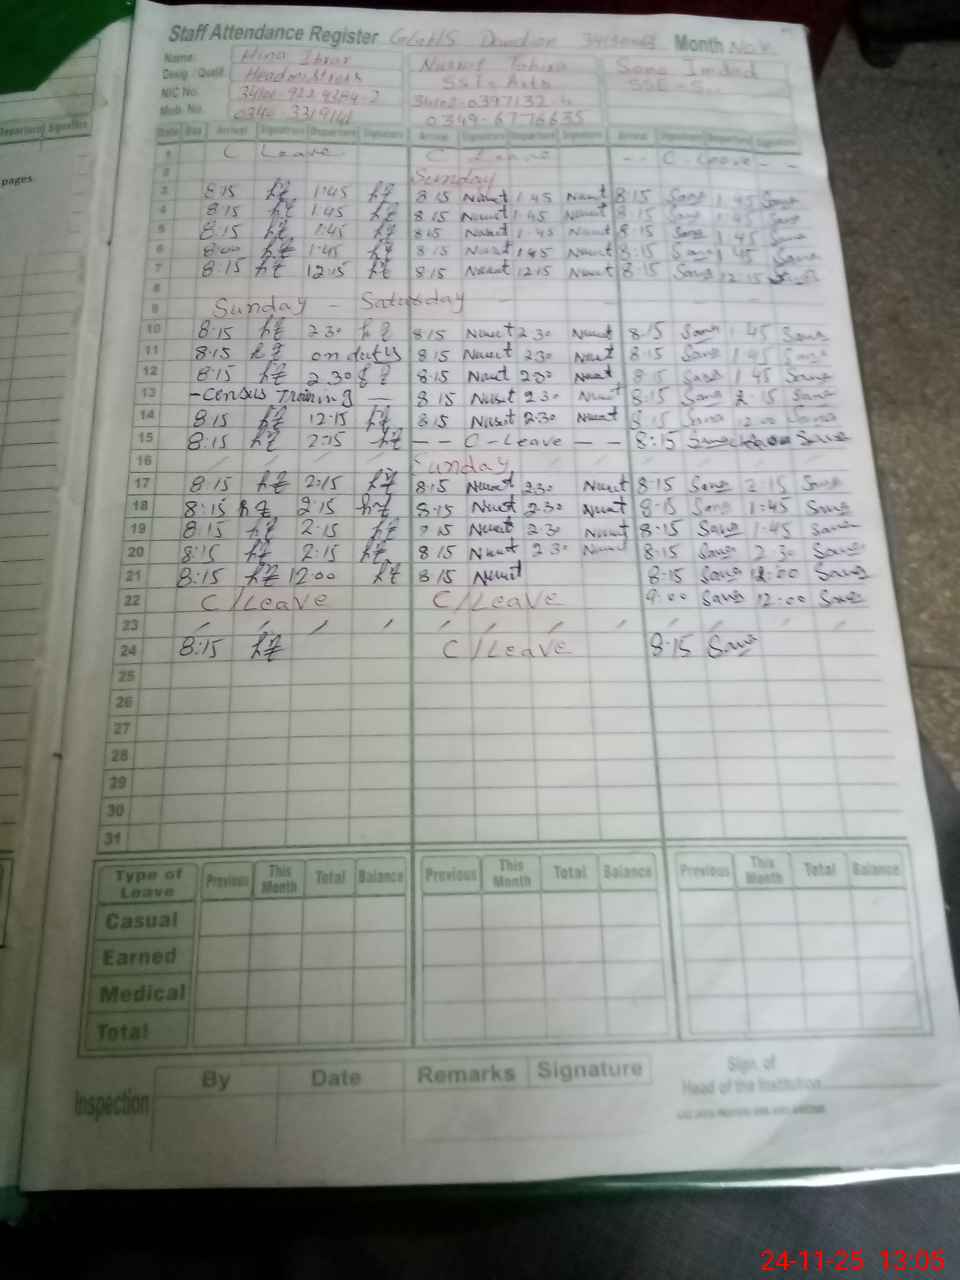 Staff Attendance Register GGHS Month Nov.
Name: Hina Nusrat Tahira Sana Imdad
Desig. Qualif. Headmistress SST-Arts SSE-S..
NIC No.
Mob. No. 0349-6776635
Departure Signature
Date Day Arrival Signature Departure Signature Arrival Signature Departure Signature Arrival Signature Departure Signature
1 C Leave C Leave -- C-Leave --
2 Sunday
pages.
3 8:15 1:45 8:15 Nusrat 1:45 Nusrat 8:15 Sana 1:45 Sana
4 8:15 1:45 8:15 Nusrat 1:45 Nusrat 8:15 Sana 1:45 Sana
5 8:15 1:45 8:15 Nusrat 1:45 Nusrat 8:15 Sana 1:45 Sana
6 8:00 1:45 8:15 Nusrat 1:45 Nusrat 8:15 Sana 1:45 Sana
7 8:15 12:15 8:15 Nusrat 12:15 Nusrat 8:15 Sana 12:15
8
9 Sunday - Saturday
10 8:15 2:30 8:15 Nusrat 2:30 Nusrat 8:15 Sana 1:45 Sana
11 8:15 on duty 8:15 Nusrat 2:30 Nusrat 8:15 Sana 1:45 Sana
12 8:15 2:30 8:15 Nusrat 2:30 Nusrat 8:15 Sana 1:45 Sana
13 -Census Training - 8:15 Nusrat 2:30 Nusrat 8:15 Sana 2:15 Sana
14 8:15 12:15 8:15 Nusrat 2:30 Nusrat 8:15 Sana 12:00 Sana
15 8:15 2:15 -- C-Leave -- 8:15 Sana Sana
16 Sunday
17 8:15 2:15 8:15 Nusrat 2:30 Nusrat 8:15 Sana 2:15 Sana
18 8:15 2:15 8:15 Nusrat 2:30 Nusrat 8:15 Sana 1:45 Sana
19 8:15 2:15 Nusrat 2:30 Nusrat 8:15 Sana 1:45 Sana
20 8:15 2:15 8:15 Nusrat 2:30 Nusrat 8:15 Sana 2:30 Sana
21 8:15 12:00 8:15 Nusrat 8:15 Sana 12:00 Sana
22 C/Leave C/Leave 9:00 Sana 12:00 Sana
23
24 8:15 C/Leave 8:15 Sana
25
26
27
28
29
30
31
Type of Leave Previous This Month Total Balance Previous This Month Total Balance Previous This Month Total Balance
Casual
Earned
Medical
Total
Inspection By Date Remarks Signature
Sign. of
Head of the Institution
24-11-25 13:05